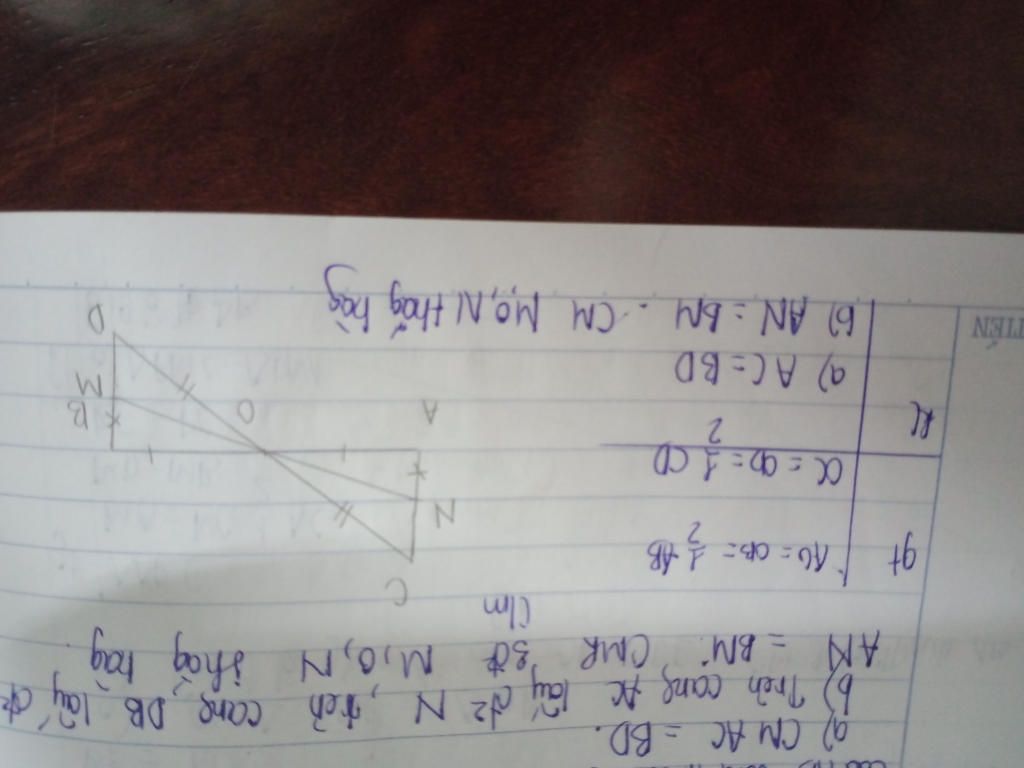 a) CM AC = BD.
b) Trên cạnh AC lấy N, trên cạnh DB lấy
AN = BM. CMR M, O, N thẳng hàng
Clm
gt
AO = OB = 1/2 AB
OC = OD = 1/2 CD
kl
a) AC = BD
b) AN = BM - CM M,O,N thẳng hàng
C
N
A
O
B
M
D
TIÊN